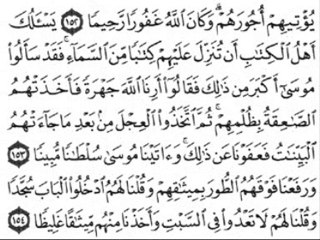 يُؤْتِيهِمْ أُجُورَهُمْ ۗ وَكَانَ اللَّهُ غَفُورًا رَّحِيمًا ١٥٢ يَسْـَٔلُكَ
أَهْلُ الْكِتَٰبِ أَن تُنَزِّلَ عَلَيْهِمْ كِتَٰبًا مِّنَ السَّمَآءِ ۚ فَقَدْ سَأَلُوا۟
مُوسَىٰٓ أَكْبَرَ مِن ذَٰلِكَ فَقَالُوٓا۟ أَرِنَا اللَّهَ جَهْرَةً فَأَخَذَتْهُمُ
الصَّٰعِقَةُ بِظُلْمِهِمْ ۚ ثُمَّ اتَّخَذُوا۟ الْعِجْلَ مِنۢ بَعْدِ مَا جَآءَتْهُمُ
الْبَيِّنَٰتُ فَعَفَوْنَا عَن ذَٰلِكَ ۚ وَءَاتَيْنَا مُوسَىٰ سُلْطَٰنًا مُّبِينًا ١٥٣
وَرَفَعْنَا فَوْقَهُمُ الطُّورَ بِمِيثَٰقِهِمْ وَقُلْنَا لَهُمُ ادْخُلُوا۟ الْبَابَ سُجَّدًا
وَقُلْنَا لَهُمْ لَا تَعْدُوا۟ فِى السَّبْتِ وَأَخَذْنَا مِنْهُم مِّيثَٰقًا غَلِيظًا ١٥٤